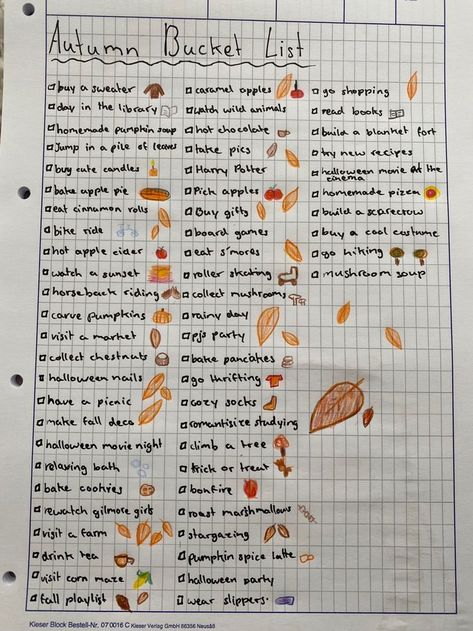 Autumn Bucket List
buy a sweater
day in the library
homemade pumpkin soup
Jump in a pile of leaves
buy cute candles
bake apple pie
eat cinnamon rolls
bike ride
hot apple cider
watch a sunset
horseback riding
carve pumpkins
visit a market
collect chestnuts
halloween nails
have a picnic
make fall deco
halloween movie night
relaxing bath
bake cookies
rewatch gilmore girls
visit a farm
drink tea
visit corn maze
fall playlist
caramel apples
watch wild animals
hot chocolate
take pics
Harry Potter
Pick apples
Buy gifts
board games
eat s'mores
roller skating
collect mushrooms
rainy day
pjs party
bake pancakes
go thrifting
cozy socks
romantisize studying
climb a tree
trick or treat
bonfire
roast marshmallows
stargazing
pumpkin spice latte
halloween party
wear slippers
go shopping
read books
build a blanket fort
try new recipes
halloween movie at the
cinema
homemade pizza
build a scarecrow
buy a cool costume
go hiking
mushroom soup
Kieser Block Bestell-Nr. 07 0016 C Kieser Verlag GmbH 86356 Neusäß